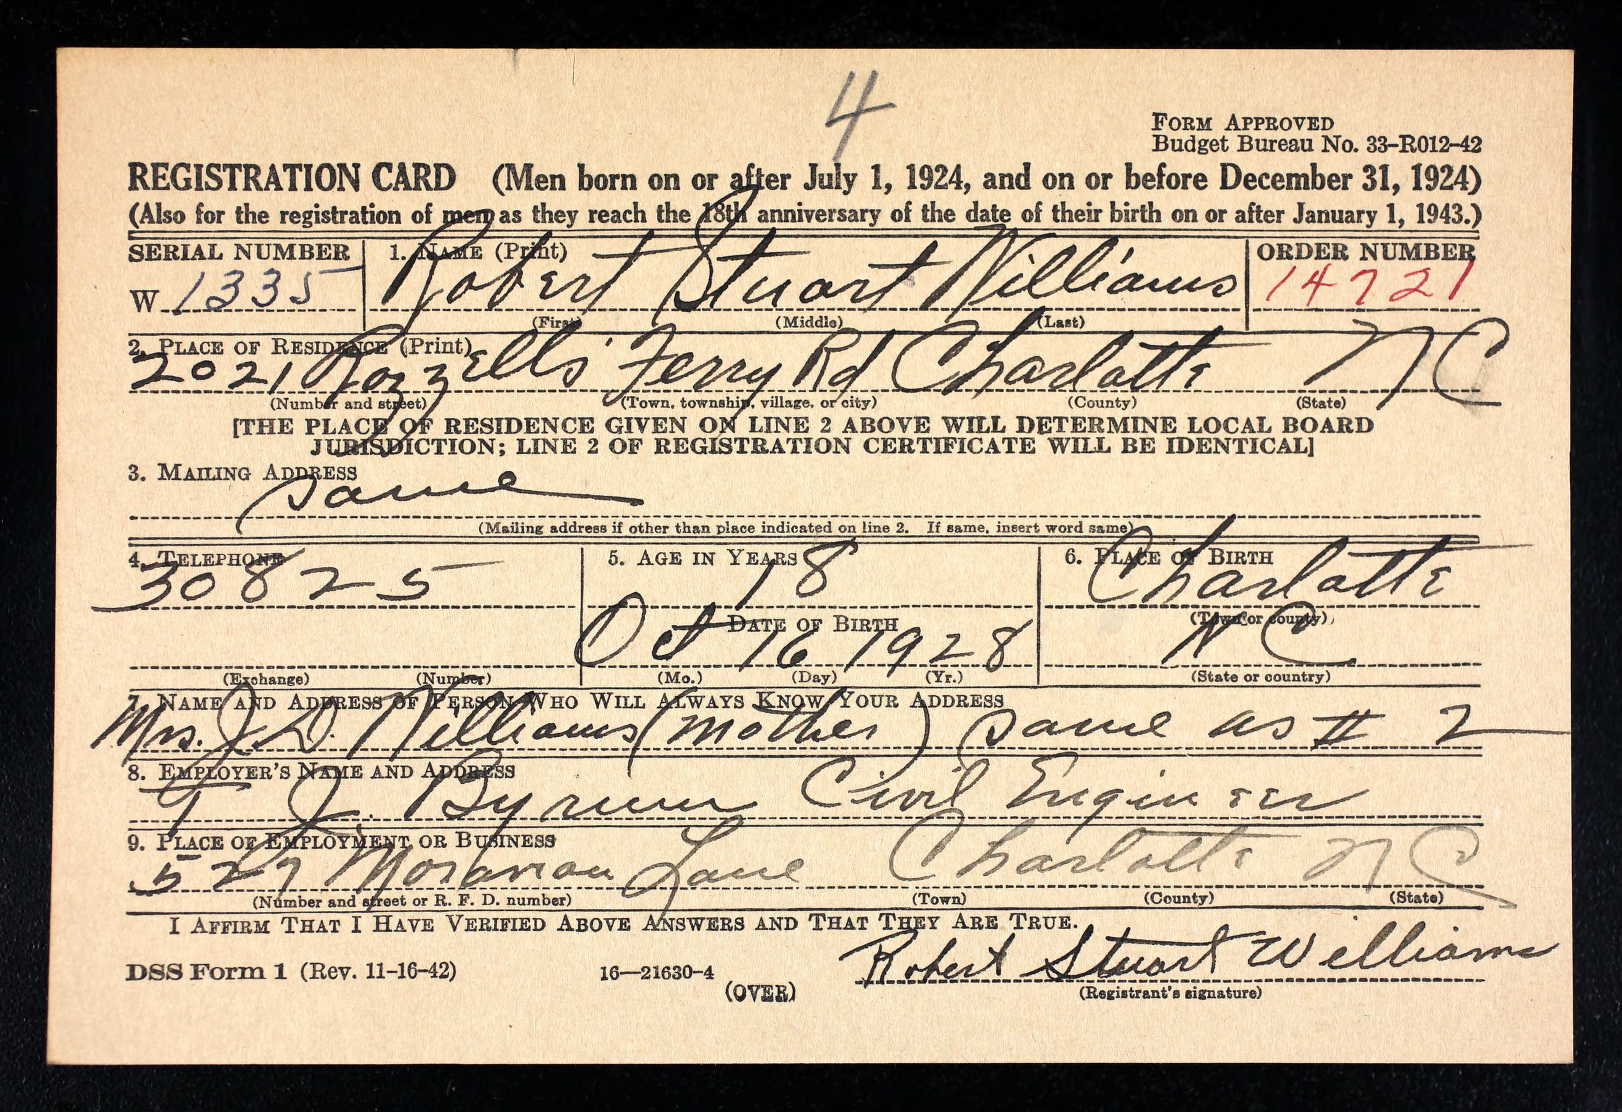 4
FORM APPROVED
Budget Bureau No. 33-R012-42
REGISTRATION CARD (Men born on or after July 1, 1924, and on or before December 31, 1924)
(Also for the registration of men as they reach the 18th anniversary of the date of their birth on or after January 1, 1943.)
SERIAL NUMBER 1. NAME (Print) ORDER NUMBER
W 1335 Robert Stuart Williams 14721
(First) (Middle) (Last)
2. PLACE OF RESIDENCE (Print)
2021 Rozzells Ferry Rd Charlotte N C
(Number and street) (Town, township, village, or city) (County) (State)
[THE PLACE OF RESIDENCE GIVEN ON LINE 2 ABOVE WILL DETERMINE LOCAL BOARD
JURISDICTION; LINE 2 OF REGISTRATION CERTIFICATE WILL BE IDENTICAL]
3. MAILING ADDRESS
same
(Mailing address if other than place indicated on line 2. If same, insert word same)
4. TELEPHONE 5. AGE IN YEARS 6. PLACE OF BIRTH
30825 18 Charlotte
DATE OF BIRTH (Town or county)
Oct 16 1928 N C
(Exchange) (Number) (Mo.) (Day) (Yr.) (State or country)
7. NAME AND ADDRESS OF PERSON WHO WILL ALWAYS KNOW YOUR ADDRESS
Mrs. J. D. Williams (mother) same as # 2
8. EMPLOYER'S NAME AND ADDRESS
T J. Bynum Civil Engineer
9. PLACE OF EMPLOYMENT OR BUSINESS
527 Moravian Lane Charlotte N C
(Number and street or R. F. D. number) (Town) (County) (State)
I AFFIRM THAT I HAVE VERIFIED ABOVE ANSWERS AND THAT THEY ARE TRUE.
Robert Stuart Williams
DSS Form 1 (Rev. 11-16-42) 16—21630-4
(OVER) (Registrant's signature)